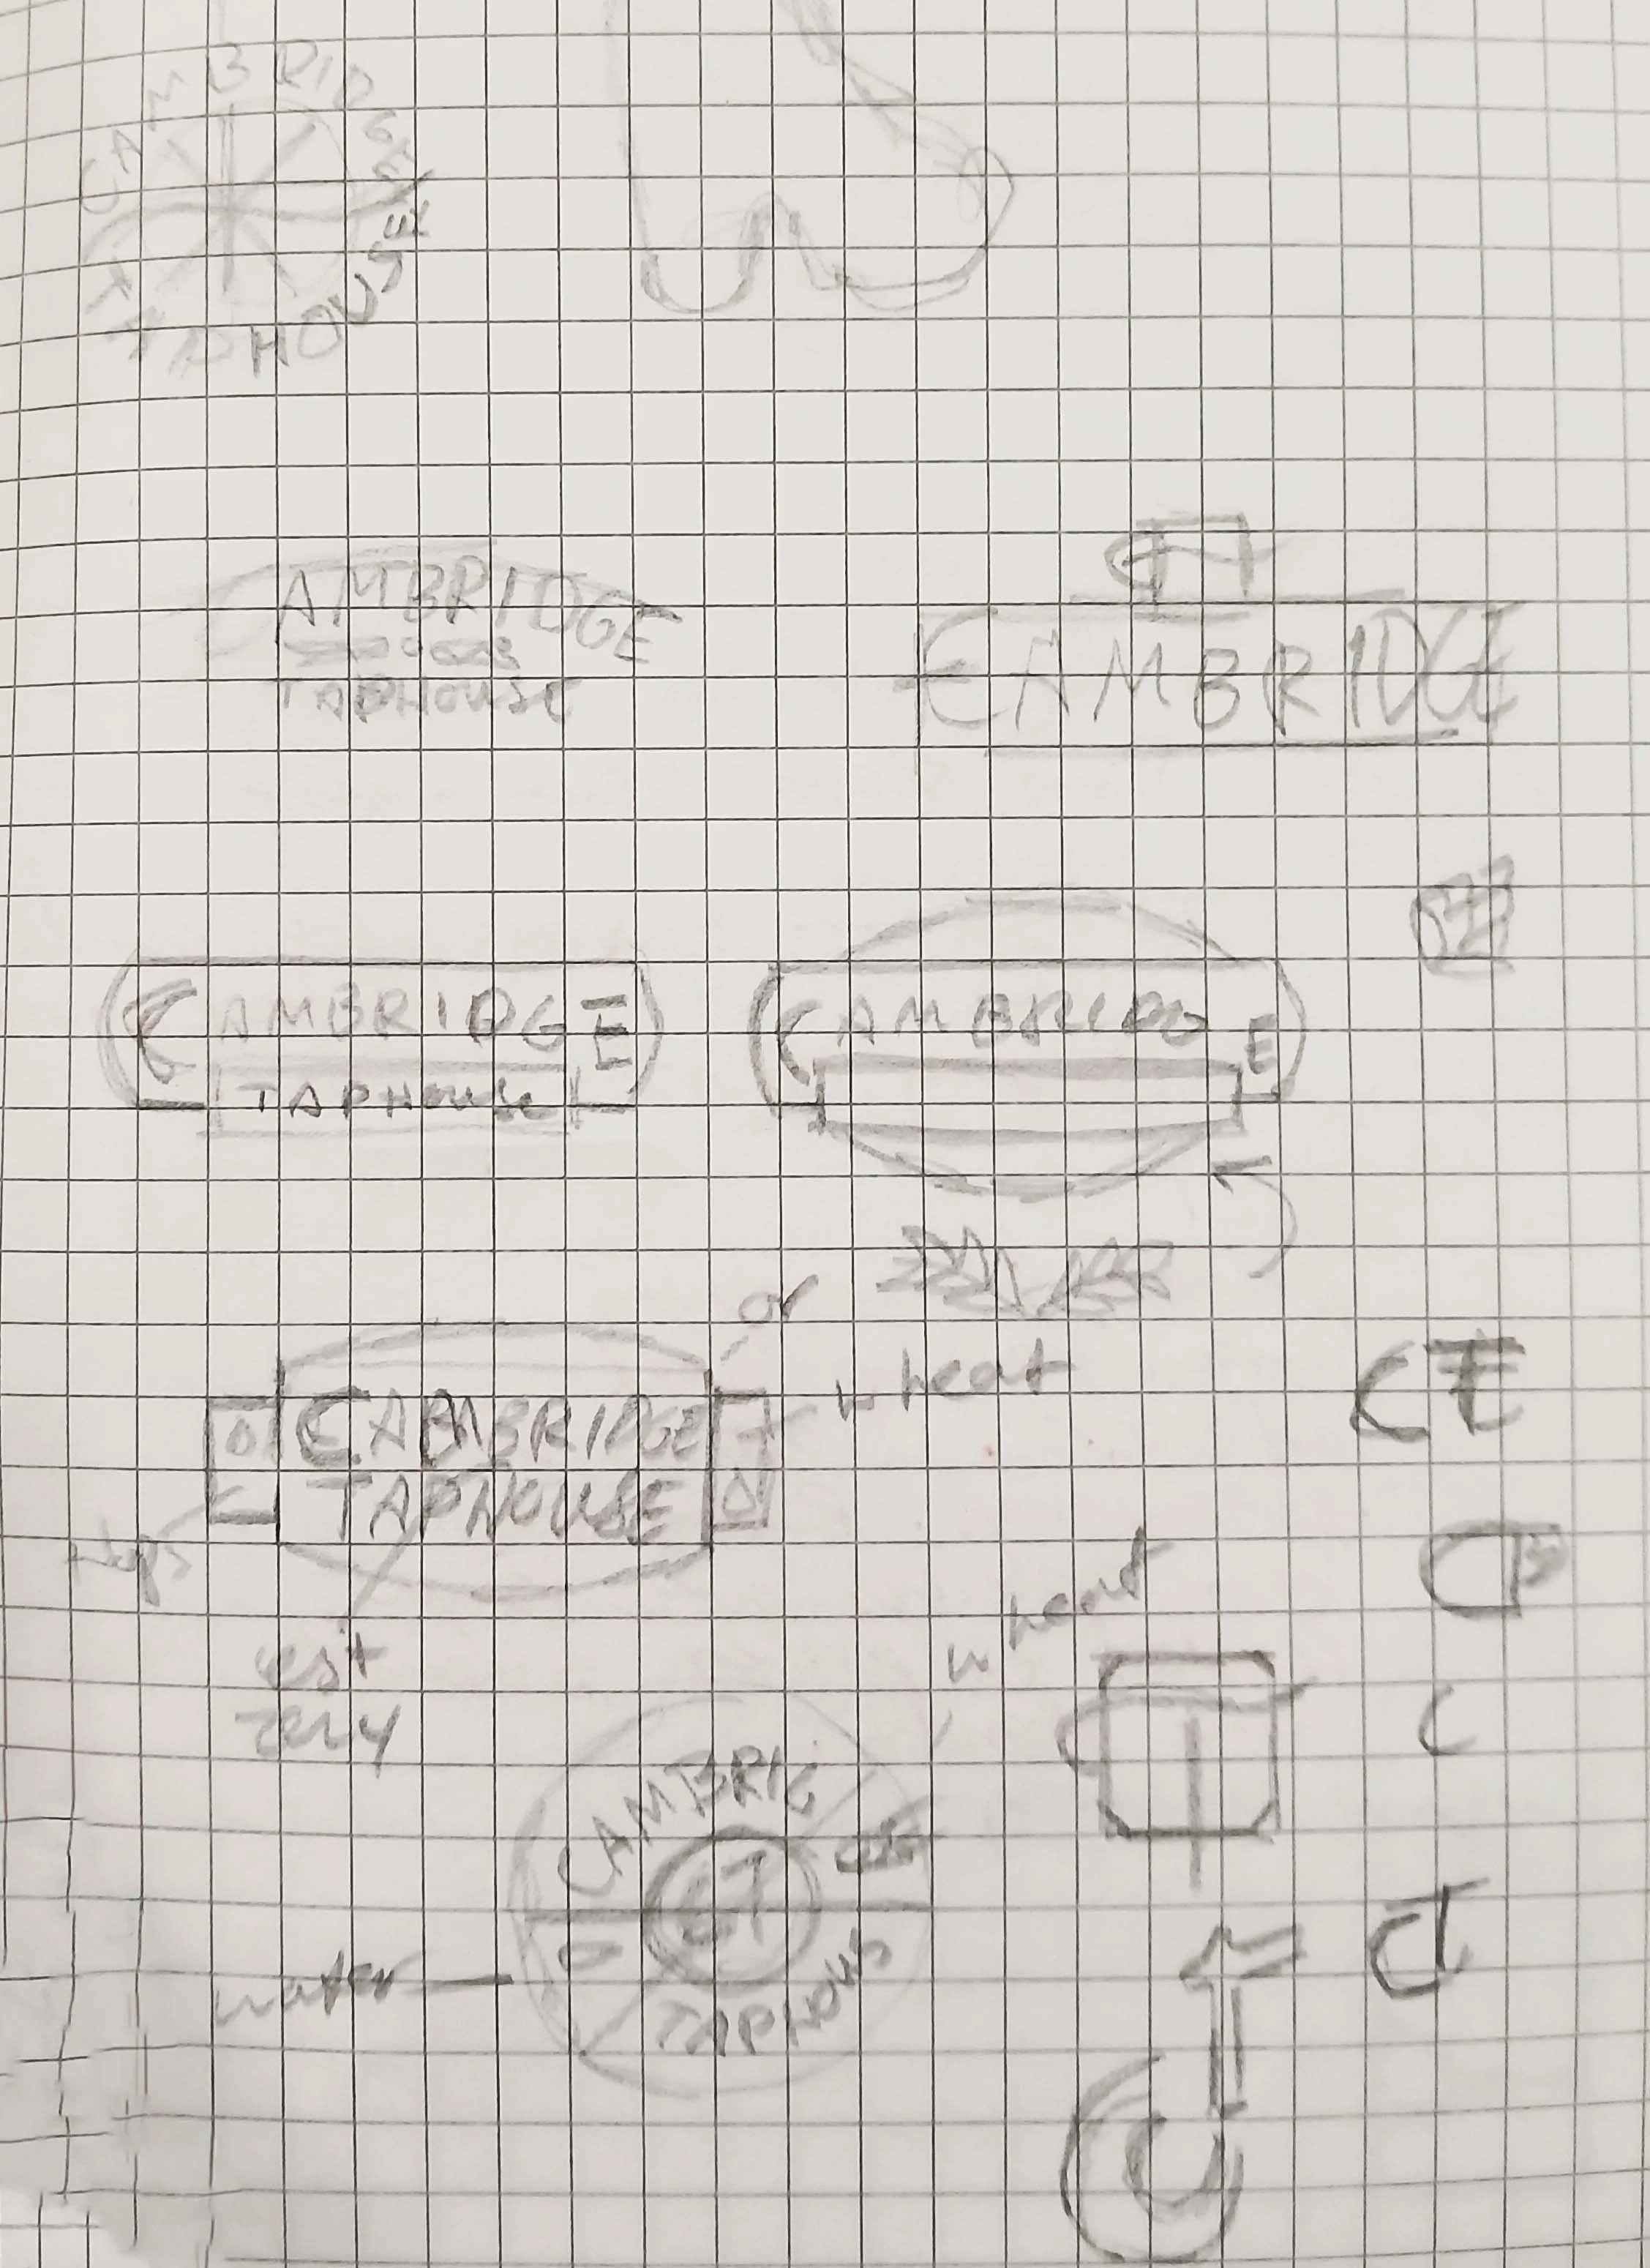 CAMBRIDGE
TAPHOUSE
AMBRIDGE
TAPHOUSE
CAMBRIDGE
CAMBRIDGE
TAPHOUSE
CAMBRIDG E
or
wheat
CAMBRIDGE
TAPHOUSE
Hops
CT
wheat
est
CAMBRIG
CT
TAPHOUS
water
C
CT